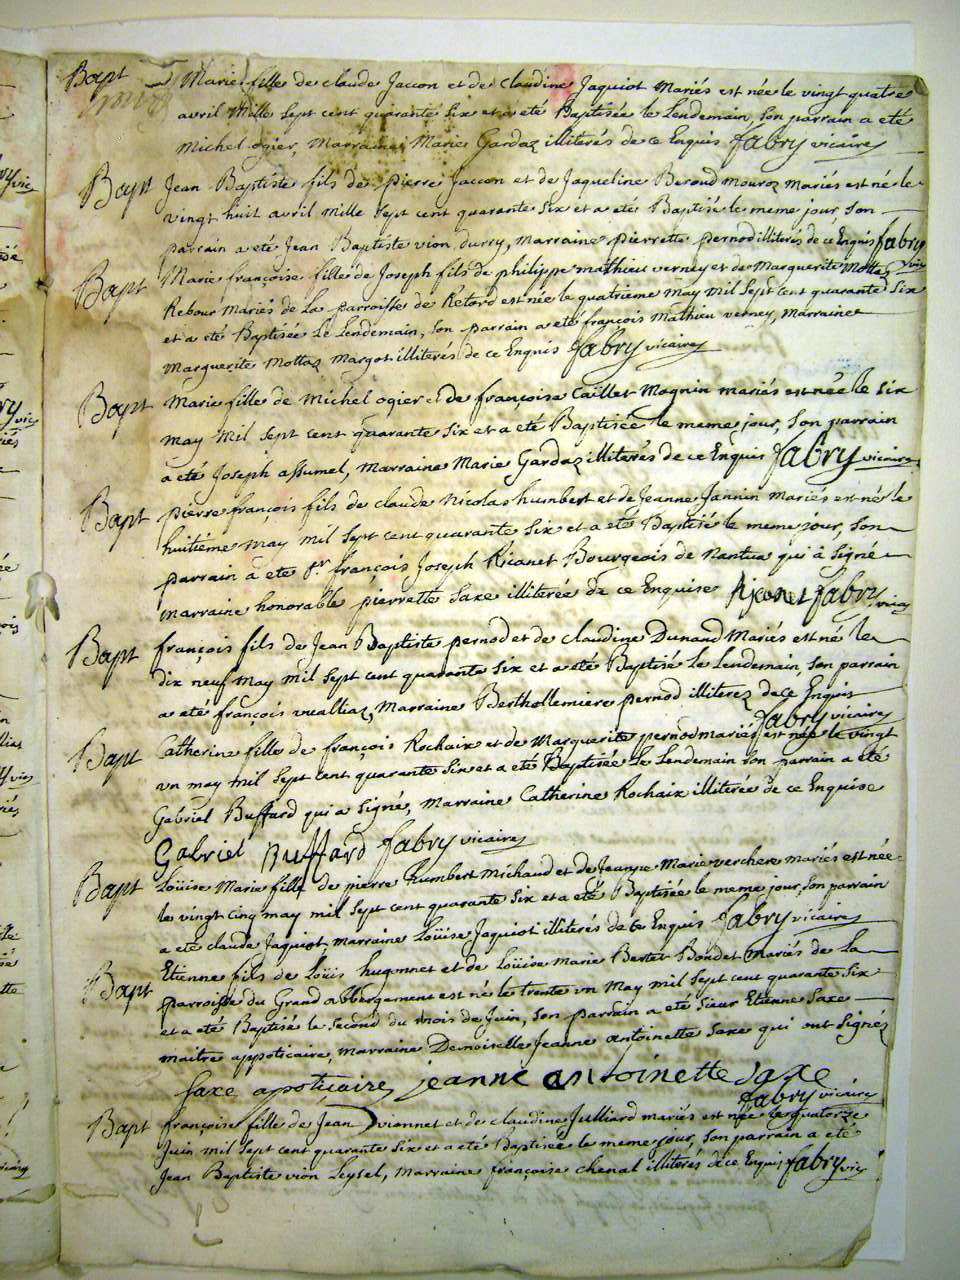 Bapt Marie fille de claude Jaccon et de Claudine Jaquiot Mariés est née le vingt quatre
avril Mille Sept cent quarante Six et a été Baptisée le Lendemain, Son parrain a été
Michel ogier, Marraine Marie Gardaz illiterés de ce Enquis fabry vicaire
Bapt Jean Baptiste fils de pierre Jaccon et de Jaqueline Beroud Mouroz Mariés est né le
vingt huit avril Mille Sept cent quarante Six et a été Baptisé le meme jour, Son
parrain a été Jean Baptiste vion durry, Marraine pierrette pernod illiterés de ce Enquis fabry vic
Bapt Marie françoise fille de Joseph fils de philippe mathieu verney et de Marguerite Mottaz
Rebour Mariés de La parroisse de Retord est née le quatrieme may Mil Sept cent quarante Six
et a été Baptisée Le Lendemain, Son parrain a été françois Mathieu verney, Marraine
Marguerite Mottaz Margot illiterés de ce Enquis fabry vicaire
Bapt Marie fille de Michel ogier et de françoise Caillet Magnin mariés est née le Six
may Mil Sept cent quarante Six et a été Baptisée le meme jour, Son parrain
a été Joseph assumel, Marraine Marie Gardaz illiterés de ce Enquis fabry vicaire
Bapt pierre françois fils de claude Nicolas humbert et de Jeanne Jannin Mariés est né le
huitiéme may mil Sept cent quarante Six et a été Baptisé le meme jour, Son
parrain a été Sr. françois Joseph Ricanet Bourgeois de Nantua qui à Signé
marraine honorable pierrette Saxe illiterée de ce Enquise fabry vicaire
Bapt françois fils de Jean Baptiste pernod et de claudine Dunand Mariés est né le
dix neuf may mil Sept cent quarante Six et a été Baptisé le Lendemain, Son parrain
a été françois vualliaz, Marraine Berthollemiere pernod illiterez de ce Enquis
fabry vicaire
Bapt Catherine fille de françois Rochaix et de Marguerite pernod mariés est née le vingt
un may mil Sept cent quarante Six et a été Baptisée Le Lendemain Son parrain a été
Gabriel Buffard qui a Signé, Marraine Catherine Rochaix illiterée de ce Enquise
Gabriel Buffard fabry vicaire
Bapt Loüise Marie fille de pierre humbert Michaud et de Jeanne Marie verchere mariés est née
le vingt cinq may mil Sept cent quarante Six et a été Baptisée le meme jour, Son parrain
a été claude Jaquiot, marraine Loüise Jaquiot illiterés de ce Enquis fabry vicaire
Bapt Etienne fils de Loüis hugonnet et de Loüise Marie Bertet Bondet Mariés de La
parroisse du Grand abbergement est né le trente un May mil Sept cent quarante Six
et a été Baptisé le Second du mois de Juin, Son parrain a été Sieur Etienne Saxe
maitre appoticaire, marraine Demoiselle Jeanne antoinette Saxe qui ont Signéz
Saxe apoticaire, jeanne antoinette Saxe
fabry vicaire
Bapt françoise fille de Jean vionnet et de claudine Julliard mariés est née le quatorze
Juin mil Sept cent quarante Six et a été Baptisée le meme jour, Son parrain a été
Jean Baptiste vion Leysel, Marraine françoise chenal illiterés de ce Enquis fabry vic